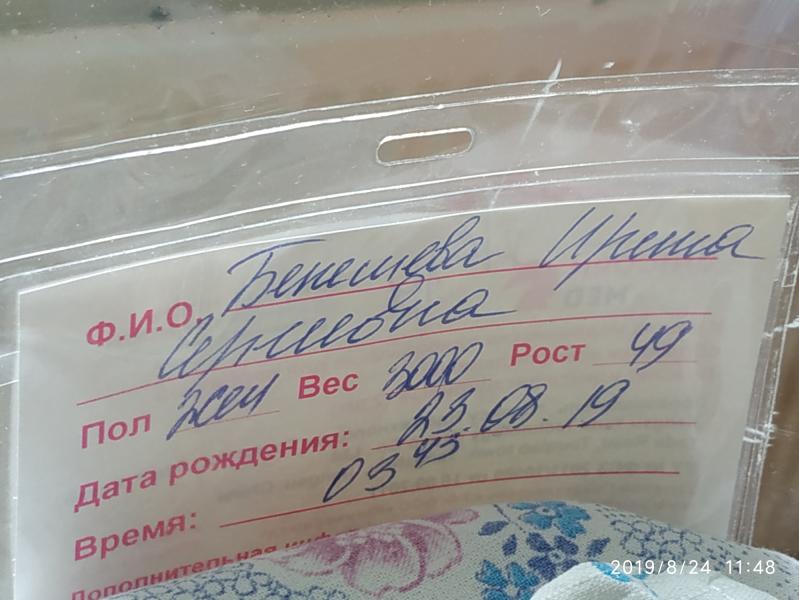 Ф.И.О. Бенешева Ирина
Сергеевна
Пол жен Вес 3000 Рост 49
Дата рождения: 23.08.19
Время: 03 45
Дополнительная
2019/8/24 11:48